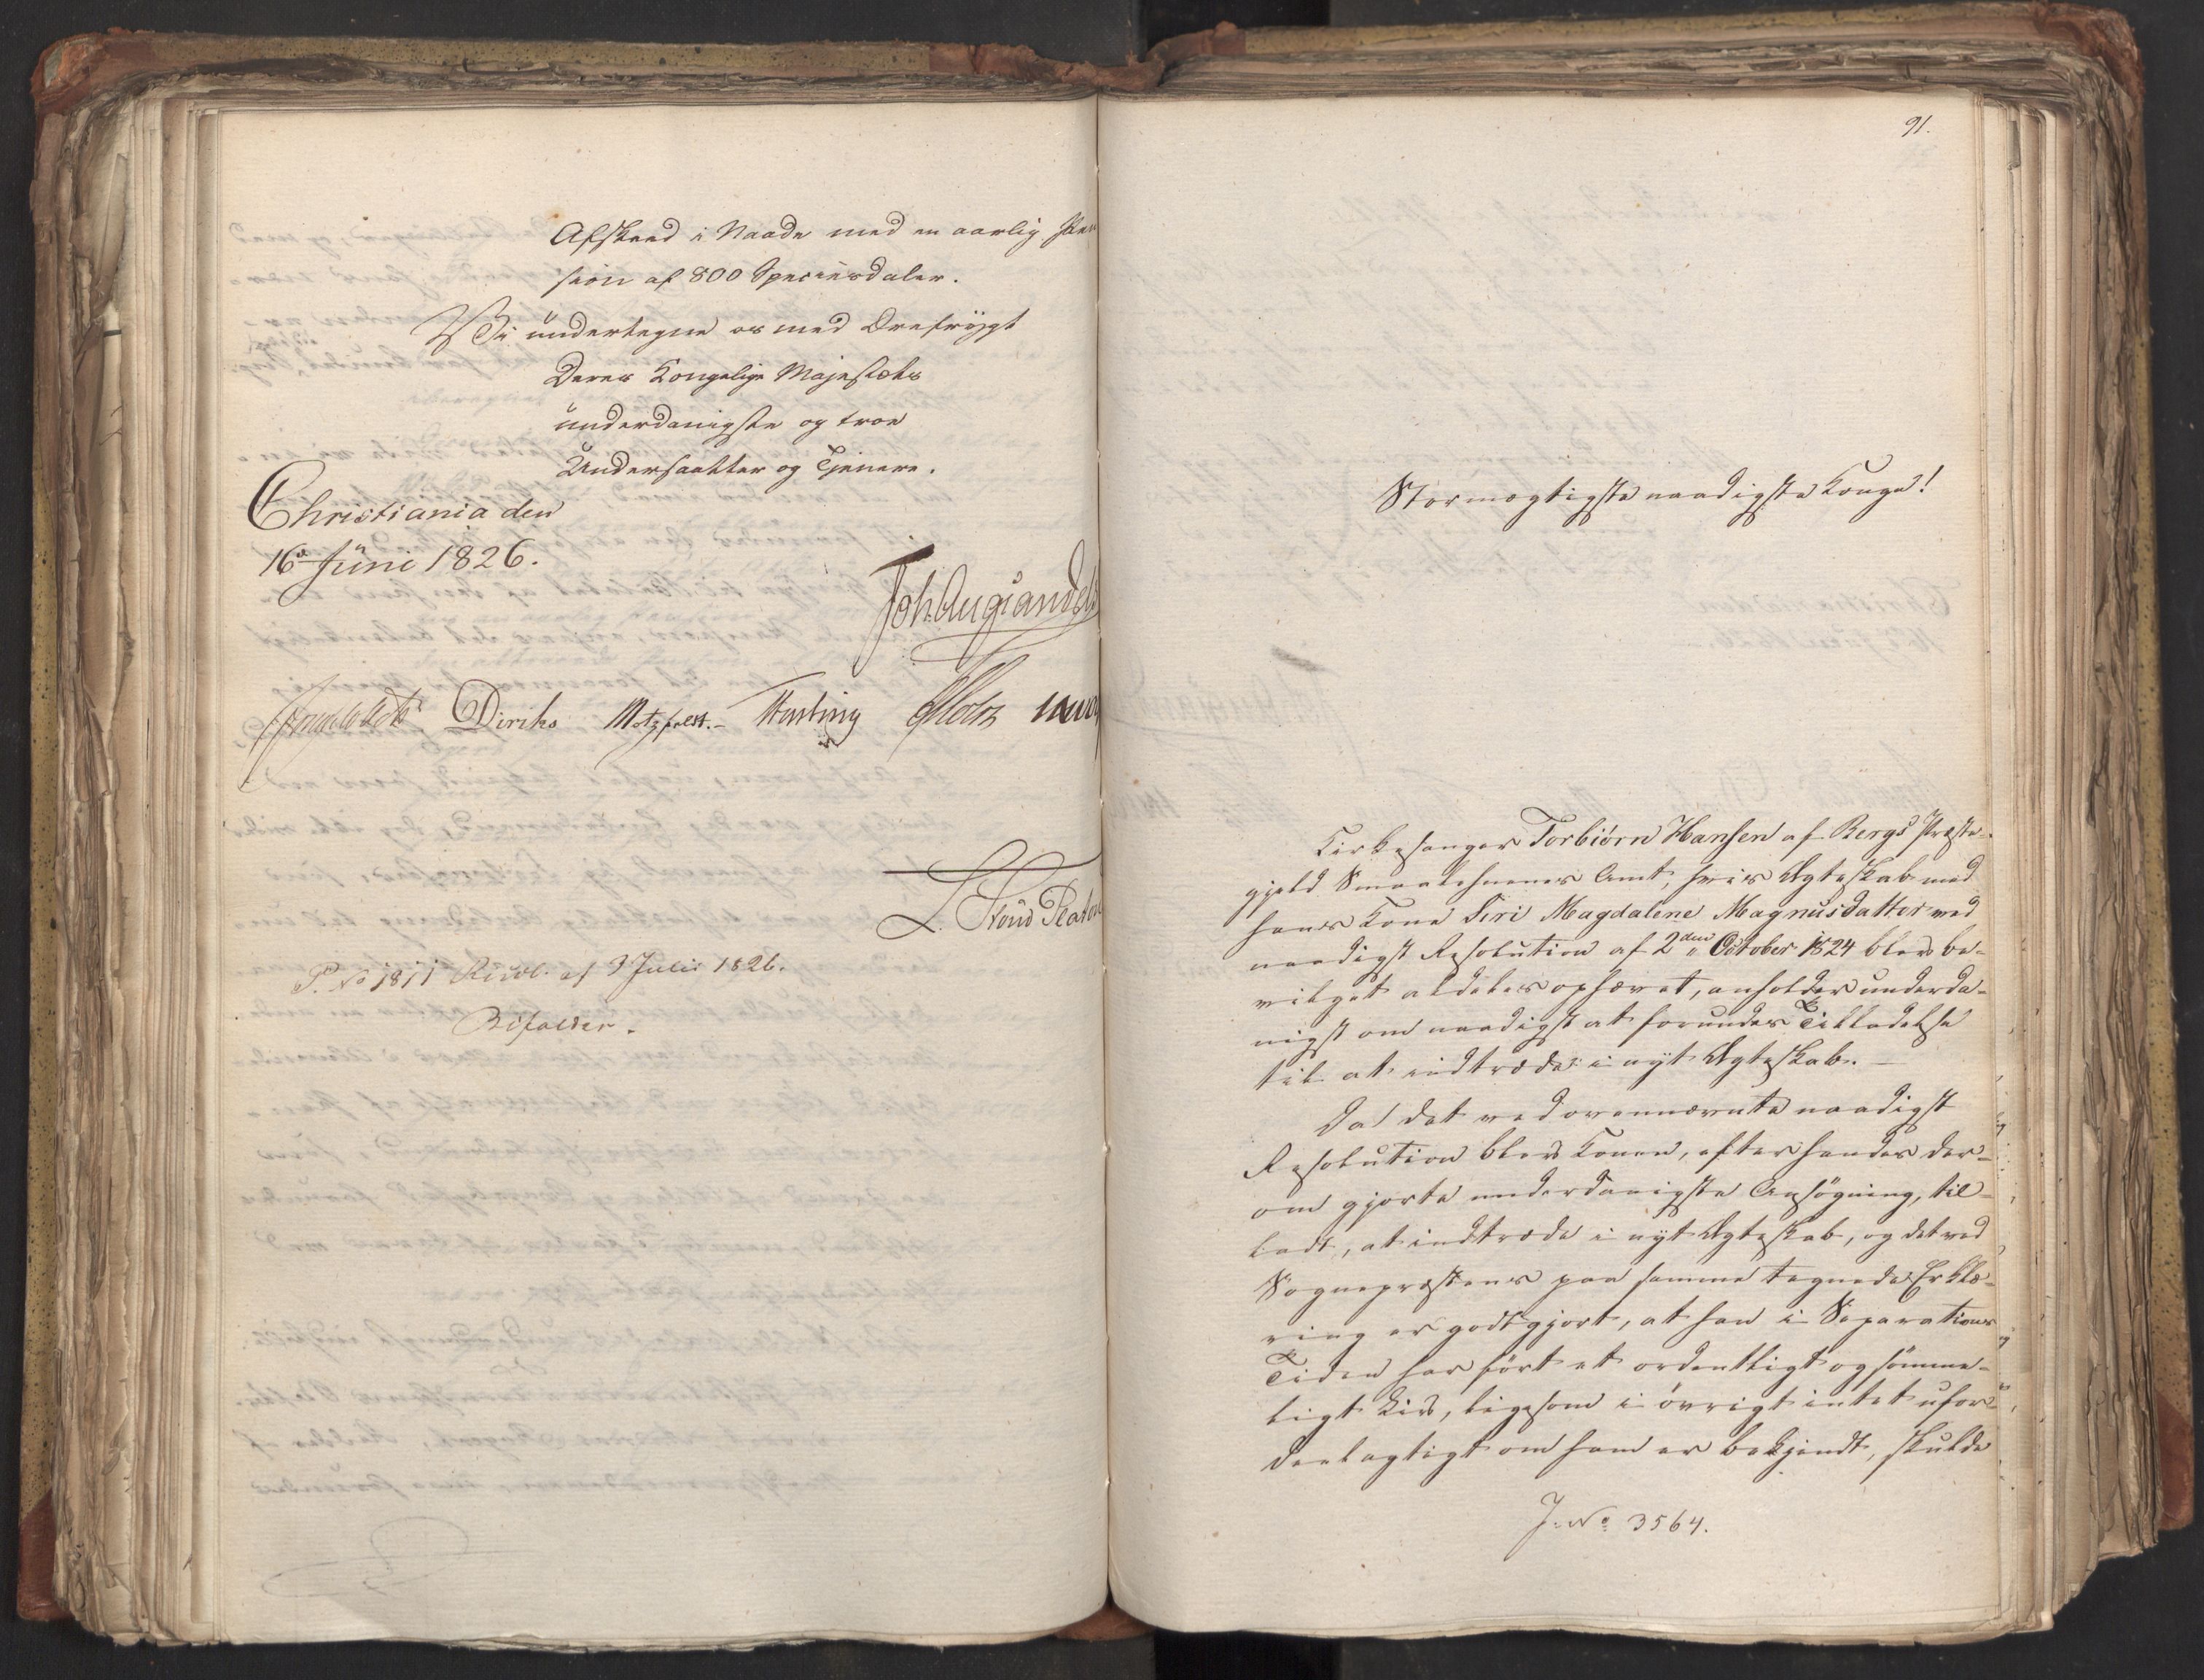 Afskeed i Naade med en aarlig Pen
sion af 800 Speciesdaler.
Vi undertegne os med Ærefrygt
Deres Kongelige Majestæts
underdanigste og troe
Undersaatter og Tjenere.
Christiania den
16de Juni 1826.
Joh. Aug: Sand
Diriks Motzfeldt.- Fasting Holst
L. Stoud Platou
P. No 1811 Resol. af 3 Julii 1826.
Bifaldes.
91.
Stormægtigste naadigste Konge!
Kirkesanger Torbiørn Hansen af Bergs Præste-
gjeld Smaalehnenes Amt, hvis Ægteskab med
hans Kone Siri Magdalene Magnusdatter ved
naadigst Resolution af 2den October 1824 blev be-
vilget aldeles ophævet, anholder underda-
nigst om naadigst at forundes Tilladelse
til at indtræde i nyt Ægteskab. –
Da det ved ovennævnte naadigst
Resolution blev Konen, efter hendes der-
om gjorte underdanigste Ansøgning, til-
ladt, at indtræde i nyt Ægteskab, og det ved
Sognepræstens paa samme tegnede Erklæ-
ring er godtgjort, at han i Separations
Tiden har ført et ordentligt og sømme-
ligt Liv, ligesom i øvrigt intet ufor-
deelagtigt om ham er bekjendt, skulde
J. No 3564.